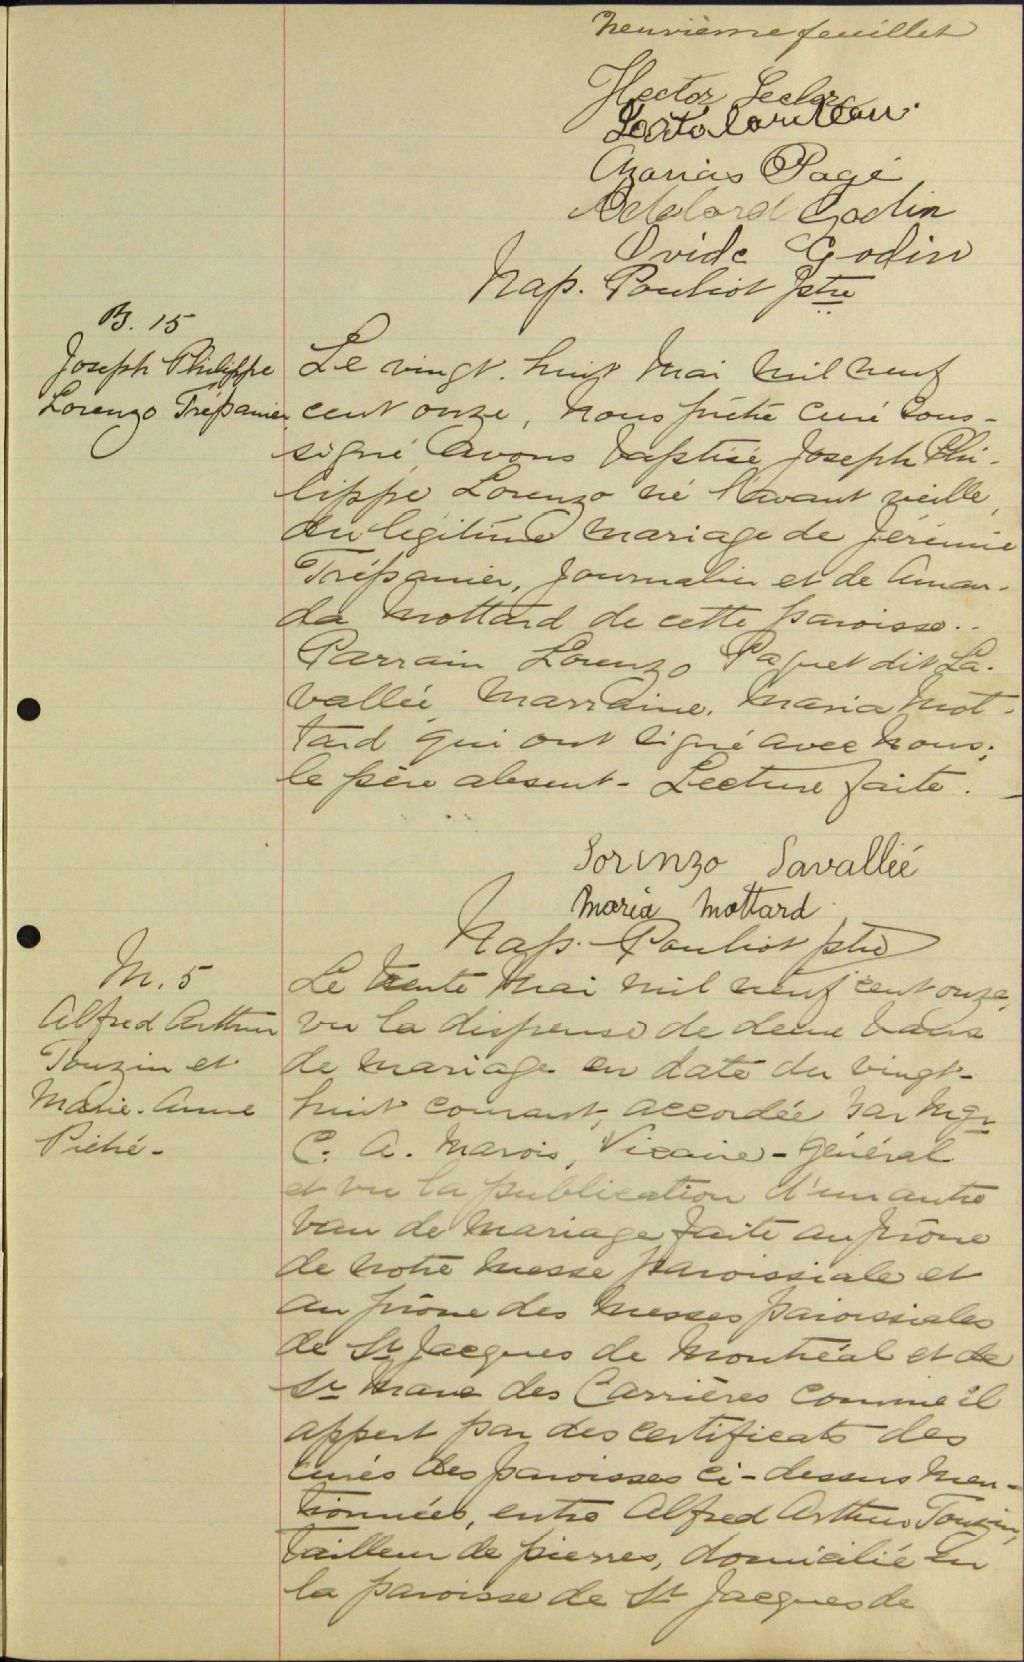 neuvième feuillet
Hector Lecler
Azarias Pagé
Adélard Godin
Ovide Godin
Nap. Pouliot ptre
B. 15
Joseph Philippe
Lorenzo Trépanier
Le vingt-huit Mai mil neuf
cent onze, Nous prêtre curé sous-
signé avons baptisé Joseph Phi-
lippe Lorenzo né l'avant veille,
du légitime mariage de Jérémie
Trépanier, journalier et de Aman-
da Mottard de cette paroisse..
Parrain Lorenzo Paquet dit La-
vallée Marraine. Maria Mot-
tard qui ont signé avec Nous;
le père absent - Lecture faite.
Lorenzo Lavallée
Maria Mottard
Nap. Pouliot ptre
M. 5
Alfred Arthur
Touzin et
Marie-Anne
Piché-
Le trente Mai mil neuf cent onze,
vu la dispense de deux bans
de mariage en date du vingt-
huit courant, accordée par Mgr
C. A. Marois, Vicaire-Général
et vu la publication d'un autre
ban de mariage faite au prône
de notre messe paroissiale et
au prône des messes paroissiales
de St Jacques de Montréal et de
St Marc des Carrières comme il
appert par des certificats des
curés des paroisses ci-dessus men-
tionnées, entre Alfred Arthur Touzin,
tailleur de pierres, domicilié en
la paroisse de St Jacques de